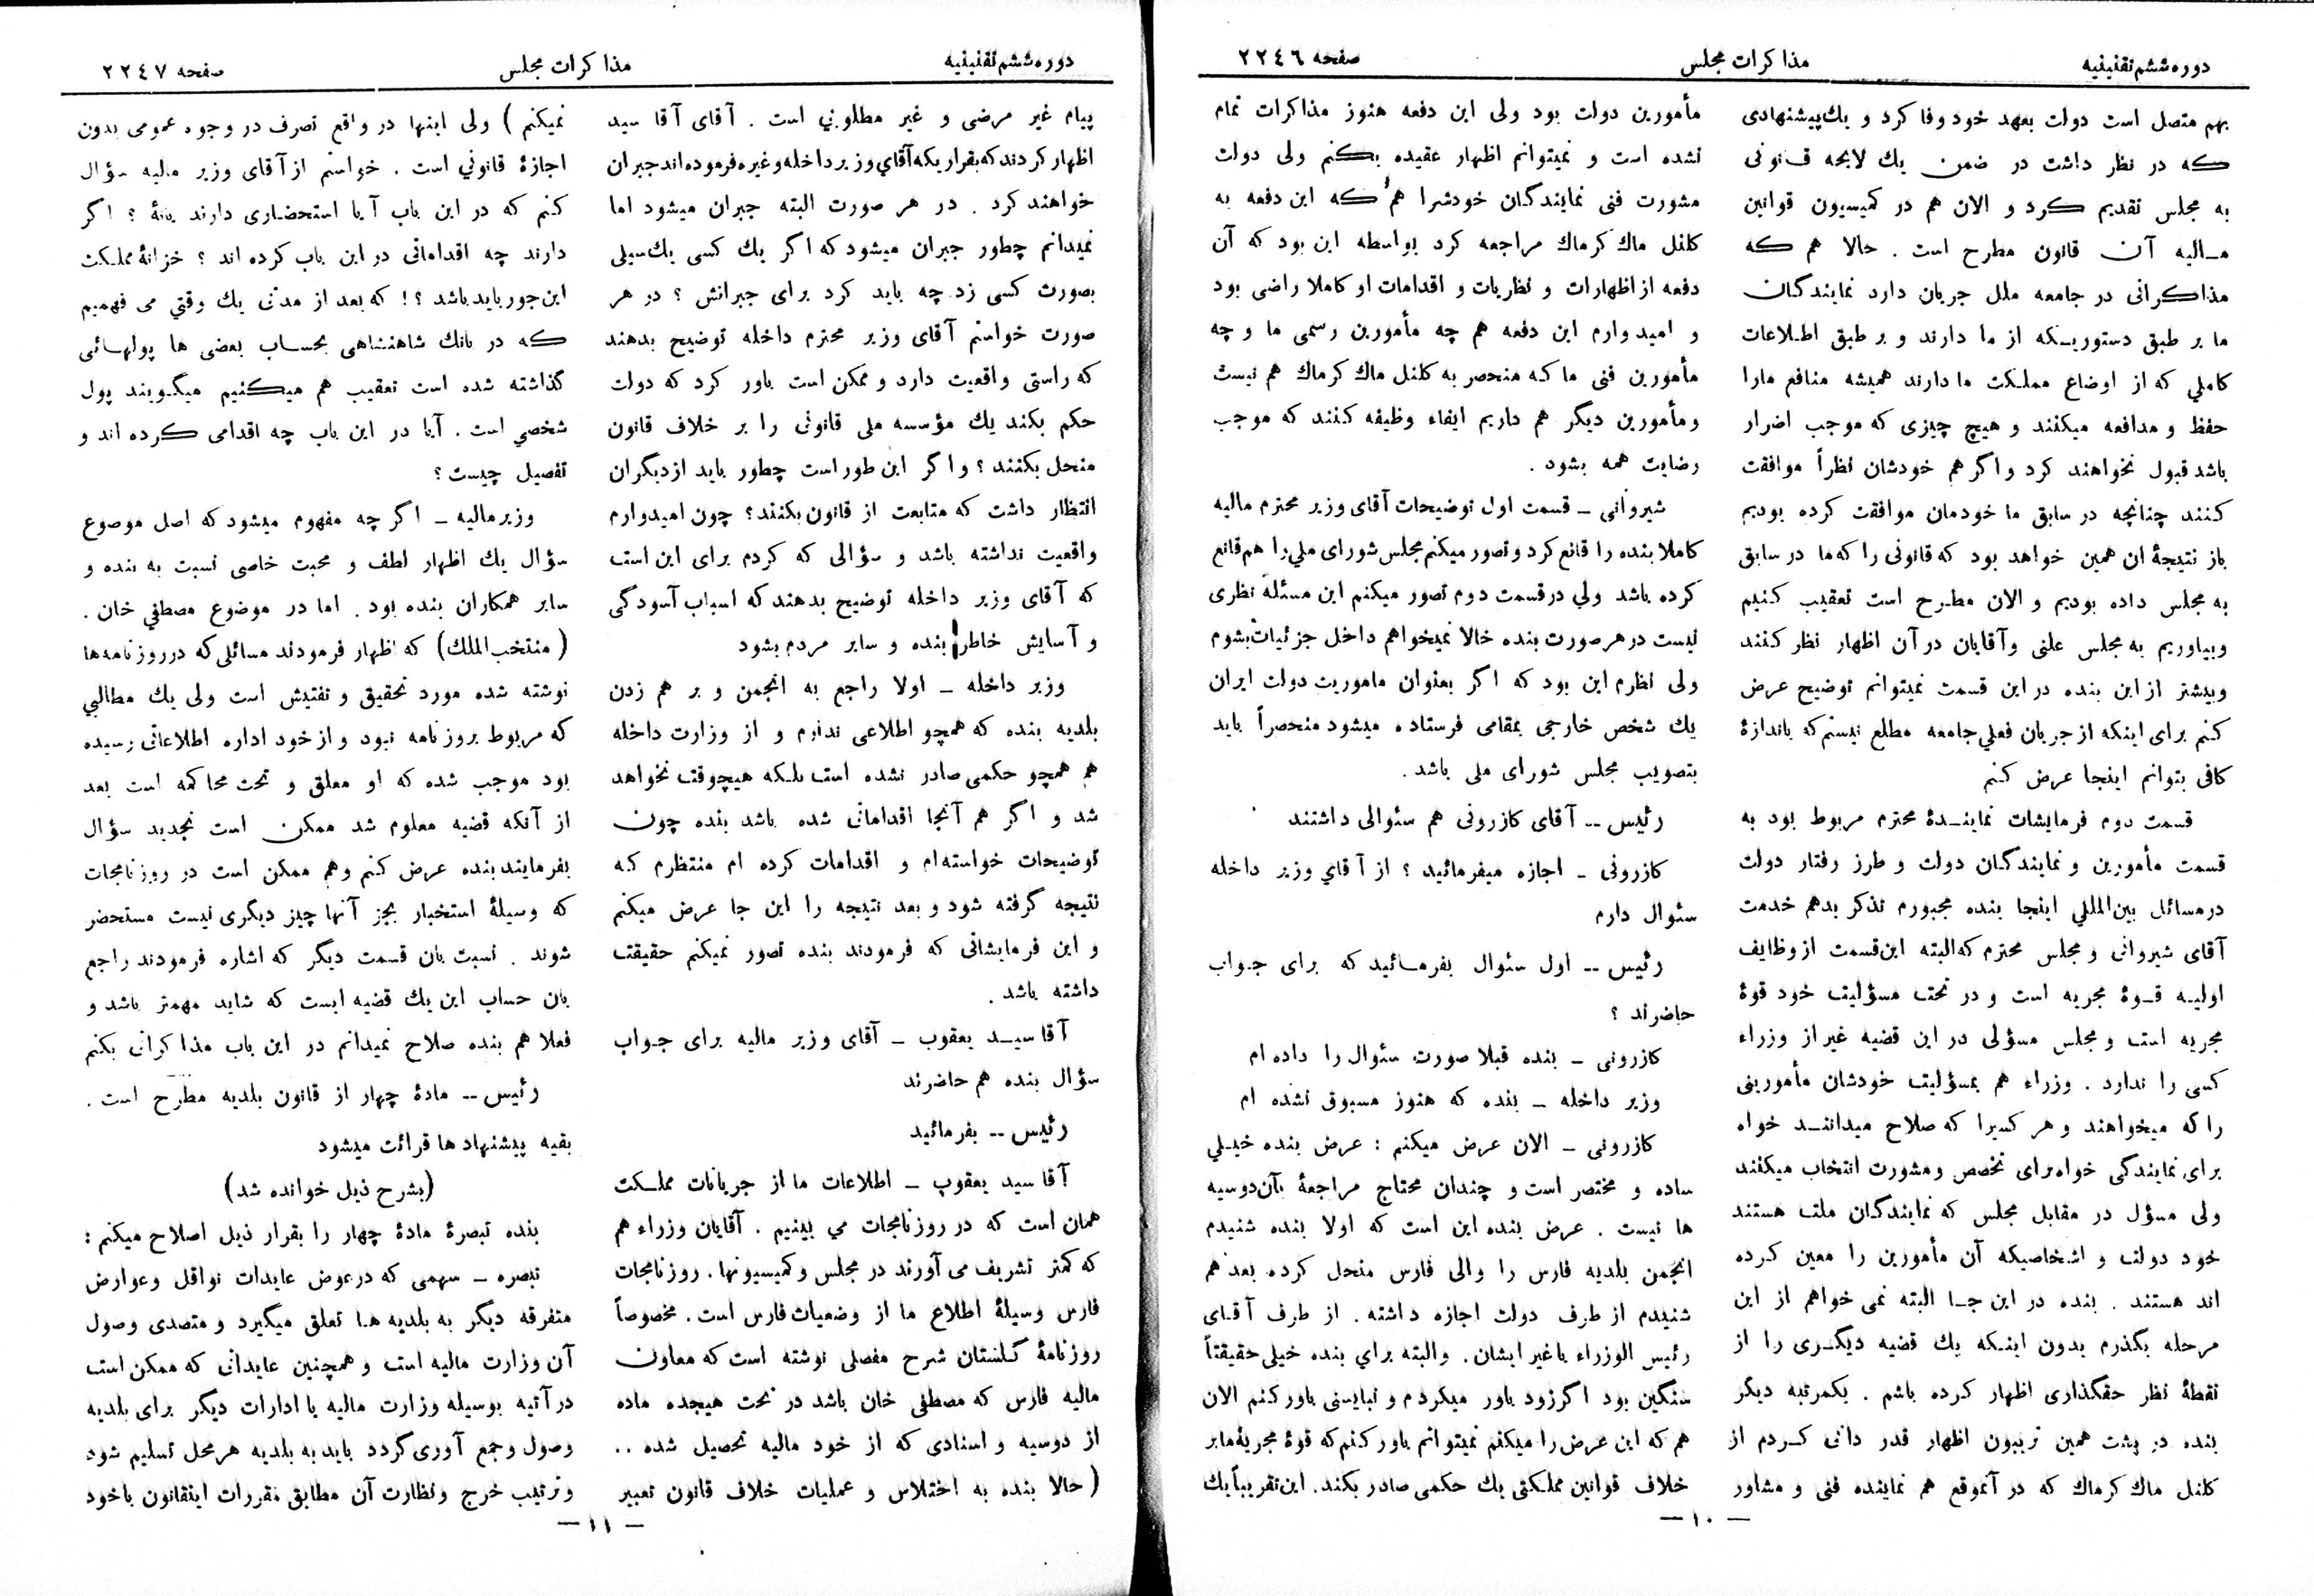 دوره ششم تقنینیه
مذاکرات مجلس
صفحه ۲۲٤٦
بهم متصل است دولت بعهد خود وفا کرد و یك پیشنهادی
که در نظر داشت در ضمن یك لایحه قانونی
به مجلس تقدیم کرد و الان هم در کمیسیون قوانین
مالیه آن قانون مطرح است . حالا هم که
مذاکراتی در جامعه ملل جریان دارد نمایندگان
ما بر طبق دستوریکه از ما دارند و بر طبق اطلاعات
کاملی که از اوضاع مملکت ما دارند همیشه منافع مارا
حفظ و مدافعه میکنند و هیچ چیزی که موجب اضرار
باشد قبول نخواهند کرد و اگر هم خودشان نظراً موافقت
کنند چنانچه در سابق ما خودمان موافقت کرده بودیم
باز نتیجهٔ ان همین خواهد بود که قانونی را که ما در سابق
به مجلس داده بودیم و الان مطرح است تعقیب کنیم
وبیاوریم به مجلس علنی وآقایان در آن اظهار نظر کنند
وبیشتر از این بنده در این قسمت نمیتوانم توضیح عرض
کنم برای اینکه از جریان فعلی جامعه مطلع نیستم که باندازهٔ
کافی بتوانم اینجا عرض کنم
قسمت دوم فرمایشات نمایندهٔ محترم مربوط بود به
قسمت مأمورین و نمایندگان دولت و طرز رفتار دولت
در مسائل بین‌المللی اینجا بنده مجبورم تذکر بدهم خدمت
آقای شیروانی و مجلس محترم که البته این قسمت از وظایف
اولیه قوهٔ مجریه است و در تحت مسؤلیت خود قوهٔ
مجریه است و مجلس مسؤلی در این قضیه غیر از وزراء
کسی را ندارد . وزراء هم بمسؤلیت خودشان مأمورینی
را که میخواهند و هر کسیرا که صلاح میدانند خواه
برای نمایندگی خواه برای تخصص و مشورت انتخاب میکنند
ولی مسؤل در مقابل مجلس که نمایندگان ملت هستند
خود دولت و اشخاصیکه آن مأمورین را معین کرده
اند هستند . بنده در این جا البته نمی خواهم از این
مرحله بگذرم بدون اینکه یك قضیه دیگری را از
نقطهٔ نظر حقگذاری اظهار کرده باشم . یکمرتبه دیگر
بنده در پشت همین تریبون اظهار قدر دانی کردم از
کلنل ماك کرماك که در آنموقع هم نماینده فنی و مشاور
مأمورین دولت بود ولی این دفعه هنوز مذاکرات تمام
نشده است و نمیتوانم اظهار عقیده بکنم ولی دولت
مشورت فنی نمایندگان خودشرا هم که این دفعه به
کلنل ماك کرماك مراجعه کرد بواسطه این بود که آن
دفعه از اظهارات و نظریات و اقدامات او کاملا راضی بود
و امیدوارم این دفعه هم چه مأمورین رسمی ما و چه
مأمورین فنی ما که منحصر به کلنل ماك کرماك هم نیست
ومأمورین دیگر هم داریم ایفاء وظیفه کنند که موجب
رضایت همه بشود .
شیروانی ــ قسمت اول توضیحات آقای وزیر محترم مالیه
کاملا بنده را قانع کرد و تصور میکنم مجلس شورای ملی را هم قانع
کرده باشد ولی در قسمت دوم تصور میکنم این مسئله نظری
نیست در هر صورت بنده حالا نمیخواهم داخل جزئیات بشوم
ولی نظرم این بود که اگر بعنوان ماموریت دولت ایران
یك شخص خارجی بمقامی فرستاده میشود منحصراً باید
بتصویب مجلس شورای ملی باشد .
رئیس ــ آقای کازرونی هم سئوالی داشتند
کازرونی ــ اجازه میفرمائید ؟ از آقای وزیر داخله
سئوال دارم
رئیس ــ اول سئوال بفرمائید که برای جواب
حاضرند ؟
کازرونی ــ بنده قبلا صورت سئوال را داده ام
وزیر داخله ــ بنده که هنوز مسبوق نشده ام
کازرونی ــ الان عرض میکنم : عرض بنده خیلی
ساده و مختصر است و چندان محتاج مراجعهٔ بآن دوسیه
ها نیست . عرض بنده این است که اولا بنده شنیدم
انجمن بلدیه فارس را والی فارس منحل کرده بعد هم
شنیدم از طرف دولت اجازه داشته . از طرف آقای
رئیس الوزراء یا غیر ایشان . والبته برای بنده خیلی حقیقتاً
سنگین بود اگر زود باور میکردم و نبایستی باور کنم الان
هم که این عرض را میکنم نمیتوانم باور کنم که قوهٔ مجریهٔ ما بر
خلاف قوانین مملکتی یك حکمی صادر بکند. این تقریباً یك
ــ ۱۰ ــ
دوره ششم تقنینیه
مذاکرات مجلس
صفحه ۲۲٤۷
پیام غیر مرضی و غیر مطلوبی است . آقای آقا سید
اظهار کردند که بقراریکه آقای وزیر داخله وغیره فرموده اند جبران
خواهند کرد . در هر صورت البته جبران میشود اما
نمیدانم چطور جبران میشود که اگر یك کسی یك سیلی
بصورت کسی زد چه باید کرد برای جبرانش ؟ در هر
صورت خواستم آقای وزیر محترم داخله توضیح بدهند
که راستی واقعیت دارد و ممکن است باور کرد که دولت
حکم بکند یك مؤسسه ملی قانونی را بر خلاف قانون
منحل بکنند ؟ و اگر این طور است چطور باید از دیگران
انتظار داشت که متابعت از قانون بکنند ؟ چون امیدوارم
واقعیت نداشته باشد و سؤالی که کردم برای این است
که آقای وزیر داخله توضیح بدهند که اسباب آسودگی
و آسایش خاطر بنده و سایر مردم بشود
وزیر داخله ــ اولا راجع به انجمن و بر هم زدن
بلدیه بنده که همچو اطلاعی ندارم و از وزارت داخله
هم همچو حکمی صادر نشده است بلکه هیچوقت نخواهد
شد و اگر هم آنجا اقداماتی شده باشد بنده چون
توضیحات خواسته ام و اقدامات کرده ام منتظرم که
نتیجه گرفته شود و بعد نتیجه را این جا عرض میکنم
و این فرمایشاتی که فرمودند بنده تصور نمیکنم حقیقت
داشته باشد .
آقا سید یعقوب ــ آقای وزیر مالیه برای جواب
سؤال بنده هم حاضرند
رئیس ــ بفرمائید
آقا سید یعقوب ــ اطلاعات ما از جریانات مملکت
همان است که در روزنامجات می بینیم . آقایان وزراء هم
که کمتر تشریف می آورند در مجلس و کمیسیونها . روزنامجات
فارس وسیلهٔ اطلاع ما از وضعیات فارس است . مخصوصاً
روزنامهٔ گلستان شرح مفصلی نوشته است که معاون
مالیه فارس که مصطفی خان باشد در تحت هیجده ماده
از دوسیه و اسنادی که از خود مالیه تحصیل شده ..
( حالا بنده به اختلاس و عملیات خلاف قانون تعبیر
نمیکنم ) ولی اینها در واقع تصرف در وجوه عمومی بدون
اجازهٔ قانونی است . خواستم از آقای وزیر مالیه سؤال
کنم که در این باب آیا استحضاری دارند یانهٔ ؟ اگر
دارند چه اقداماتی در این باب کرده اند ؟ خزانهٔ مملکت
این جور باید باشد ؟! که بعد از مدتی یك وقتی می فهمیم
که در بانك شاهنشاهی بحساب بعضی ها پولهائی
گذاشته شده است تعقیب هم میکنیم میگویند پول
شخصی است . آیا در این باب چه اقدامی کرده اند و
تفصیل چیست ؟
وزیر مالیه ــ اگر چه مفهوم میشود که اصل موضوع
سؤال یك اظهار لطف و محبت خاصی نسبت به بنده و
سایر همکاران بنده بود . اما در موضوع مصطفی خان .
( منتخب الملك ) که اظهار فرمودند مسائلی که در روزنامه ها
نوشته شده مورد تحقیق و تفتیش است ولی یك مطالبی
که مربوط بروزنامه نبود و از خود اداره اطلاعاتی رسیده
بود موجب شده که او معلق و تحت محاکمه است بعد
از آنکه قضیه معلوم شد ممکن است تجدید سؤال
بفرمایند بنده عرض کنم وهم ممکن است در روزنامجات
که وسیلهٔ استخبار بجز آنها چیز دیگری نیست مستحضر
شوند . نسبت بان قسمت دیگر که اشاره فرمودند راجع
بان حساب این یك قضیه ایست که شاید مهمتر باشد و
فعلا هم بنده صلاح نمیدانم در این باب مذاکراتی بکنم
رئیس ــ مادهٔ چهار از قانون بلدیه مطرح است .
بقیه پیشنهاد ها قرائت میشود
(بشرح ذیل خوانده شد)
بنده تبصرهٔ مادهٔ چهار را بقرار ذیل اصلاح میکنم :
تبصره ــ سهمی که درعوض عایدات نواقل وعوارض
متفرقه دیگر به بلدیه ها تعلق میگیرد و متصدی وصول
آن وزارت مالیه است وهمچنین عایداتی که ممکن است
در آتیه بوسیله وزارت مالیه یا ادارات دیگر برای بلدیه
وصول و جمع آوری گردد باید به بلدیه هر محل تسلیم شود
وترتیب خرج ونظارت آن مطابق مقررات اینقانون باخود
ــ ۱۱ ــ